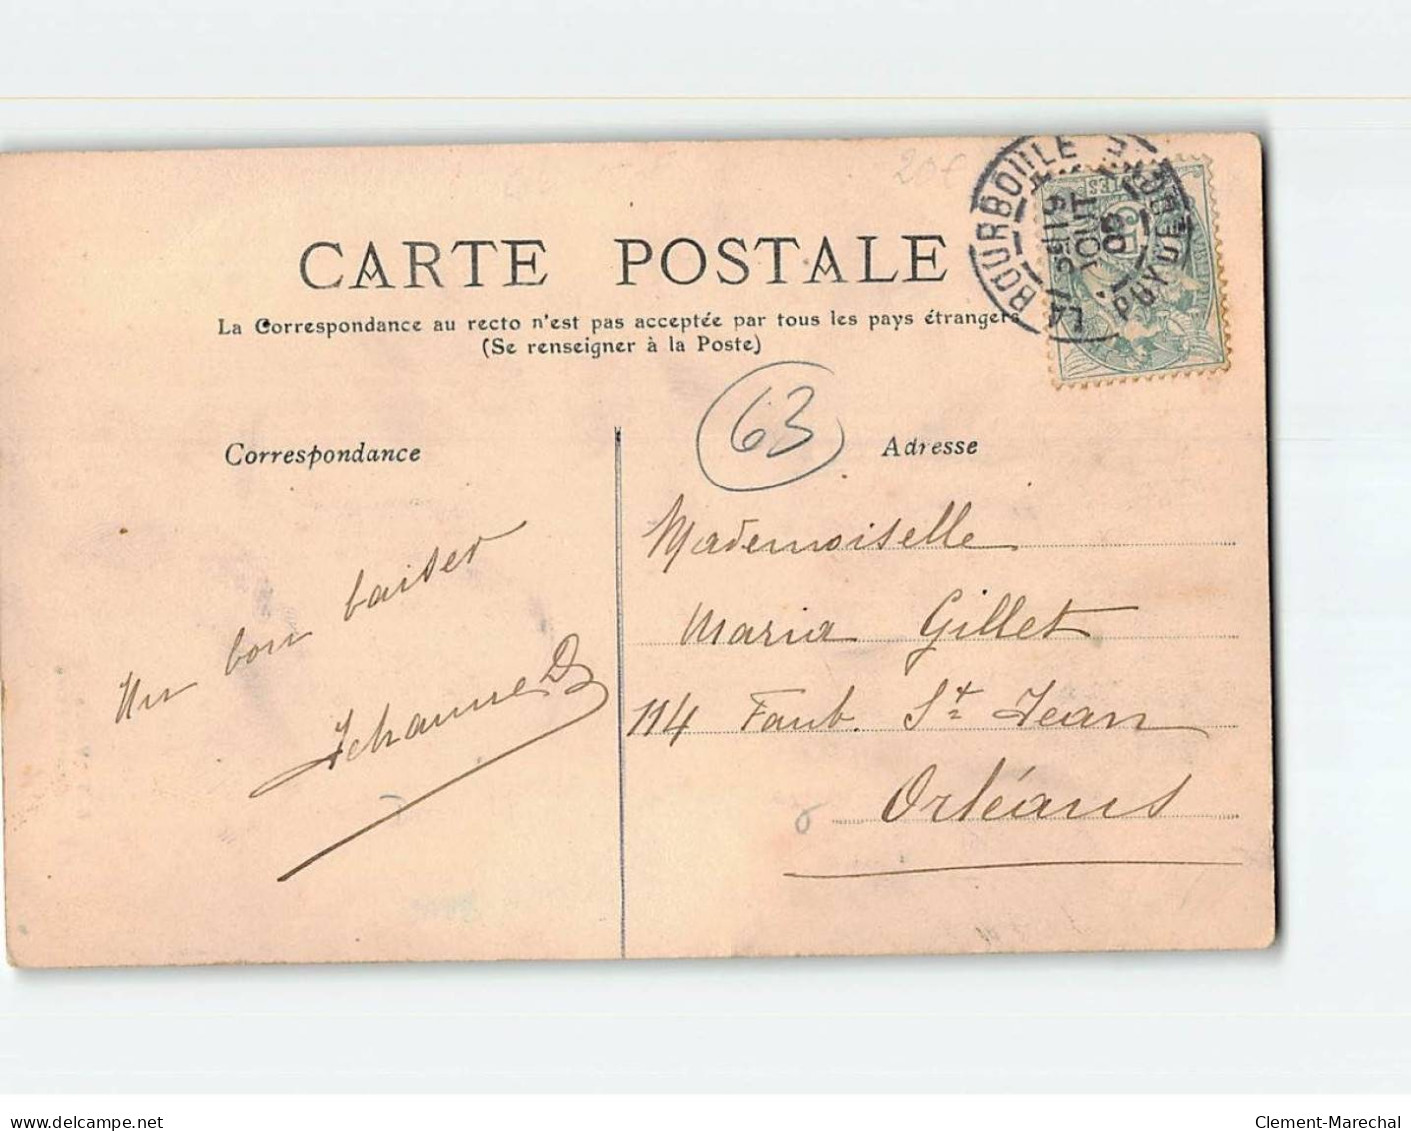 20€
CARTE POSTALE
La Correspondance au recto n'est pas acceptée par tous les pays étrangers
(Se renseigner à la Poste)
LA BOURBOULE
PUY DE DÔME
63
Correspondance
Adresse
Un bon baiser
Jehanne D
Mademoiselle
Maria Gillet
114 Faub. St Jean
Orléans
www.delcampe.net
Clement-Marechal